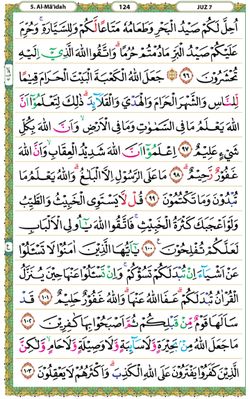 5. Al-Mā'idah 124 JUZ 7
اُحِلَّ لَكُمْ صَيْدُ الْبَحْرِ وَطَعَامُهٗ مَتَاعًا لَّكُمْ وَلِلسَّيَّارَةِۚ وَحُرِّمَ
عَلَيْكُمْ صَيْدُ الْبَرِّ مَا دُمْتُمْ حُرُمًاۗ وَاتَّقُوا اللّٰهَ الَّذِيْٓ اِلَيْهِ
تُحْشَرُوْنَ ٩٦ جَعَلَ اللّٰهُ الْكَعْبَةَ الْبَيْتَ الْحَرَامَ قِيٰمًا
لِّلنَّاسِ وَالشَّهْرَ الْحَرَامَ وَالْهَدْيَ وَالْقَلَاۤىِٕدَۗ ذٰلِكَ لِتَعْلَمُوْٓا اَنَّ
اللّٰهَ يَعْلَمُ مَا فِى السَّمٰوٰتِ وَمَا فِى الْاَرْضِۙ وَاَنَّ اللّٰهَ بِكُلِّ
شَيْءٍ عَلِيْمٌ ٩٧ اِعْلَمُوْٓا اَنَّ اللّٰهَ شَدِيْدُ الْعِقَابِۙ وَاَنَّ اللّٰهَ
غَفُوْرٌ رَّحِيْمٌۗ ٩٨ مَا عَلَى الرَّسُوْلِ اِلَّا الْبَلٰغُۗ وَاللّٰهُ يَعْلَمُ مَا
تُبْدُوْنَ وَمَا تَكْتُمُوْنَ ٩٩ قُلْ لَّا يَسْتَوِى الْخَبِيْثُ وَالطَّيِّبُ
وَلَوْ اَعْجَبَكَ كَثْرَةُ الْخَبِيْثِۚ فَاتَّقُوا اللّٰهَ يٰٓاُولِى الْاَلْبَابِ
لَعَلَّكُمْ تُفْلِحُوْنَ ١٠٠ يٰٓاَيُّهَا الَّذِيْنَ اٰمَنُوْا لَا تَسْـَٔلُوْا
عَنْ اَشْيَاۤءَ اِنْ تُبْدَ لَكُمْ تَسُؤْكُمْۚ وَاِنْ تَسْـَٔلُوْا عَنْهَا حِيْنَ يُنَزَّلُ
الْقُرْاٰنُ تُبْدَ لَكُمْۗ عَفَا اللّٰهُ عَنْهَاۗ وَاللّٰهُ غَفُوْرٌ حَلِيْمٌ ١٠١ قَدْ
سَاَلَهَا قَوْمٌ مِّنْ قَبْلِكُمْ ثُمَّ اَصْبَحُوْا بِهَا كٰفِرِيْنَ ١٠٢
مَا جَعَلَ اللّٰهُ مِنْۢ بَحِيْرَةٍ وَّلَا سَاۤىِٕبَةٍ وَّلَا وَصِيْلَةٍ وَّلَا حَامٍۙ وَّلٰكِنَّ
الَّذِيْنَ كَفَرُوْا يَفْتَرُوْنَ عَلَى اللّٰهِ الْكَذِبَۗ وَاَكْثَرُهُمْ لَا يَعْقِلُوْنَ ١٠٣